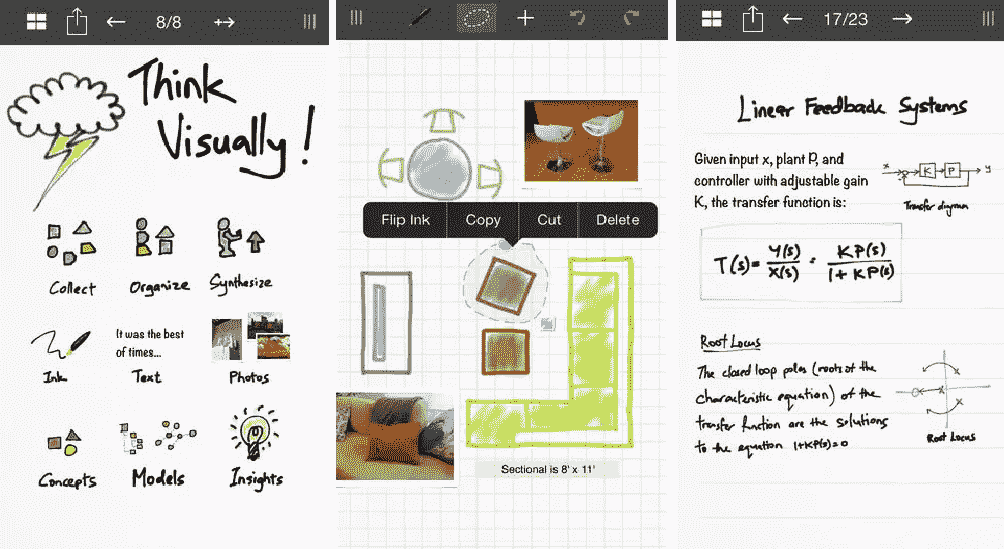 8/8
Think
Visually!
Collect
Organize
Synthesize
Ink
It was the best
of times...
Text
Photos
Concepts
Models
Insights
Flip Ink
Copy
Cut
Delete
Sectional is 8' x 11'
17/23
Linear Feedback Systems
Given input x, plant P, and
controller with adjustable gain
K, the transfer function is:
x K P y
Transfer diagram
T(s) = Y(s)/X(s) = KP(s)/1 + KP(s)
Root Locus
The closed loop poles (roots of the
characteristic equation) of the
transfer function are the solutions
to the equation 1+KP(s)=0
Root Locus